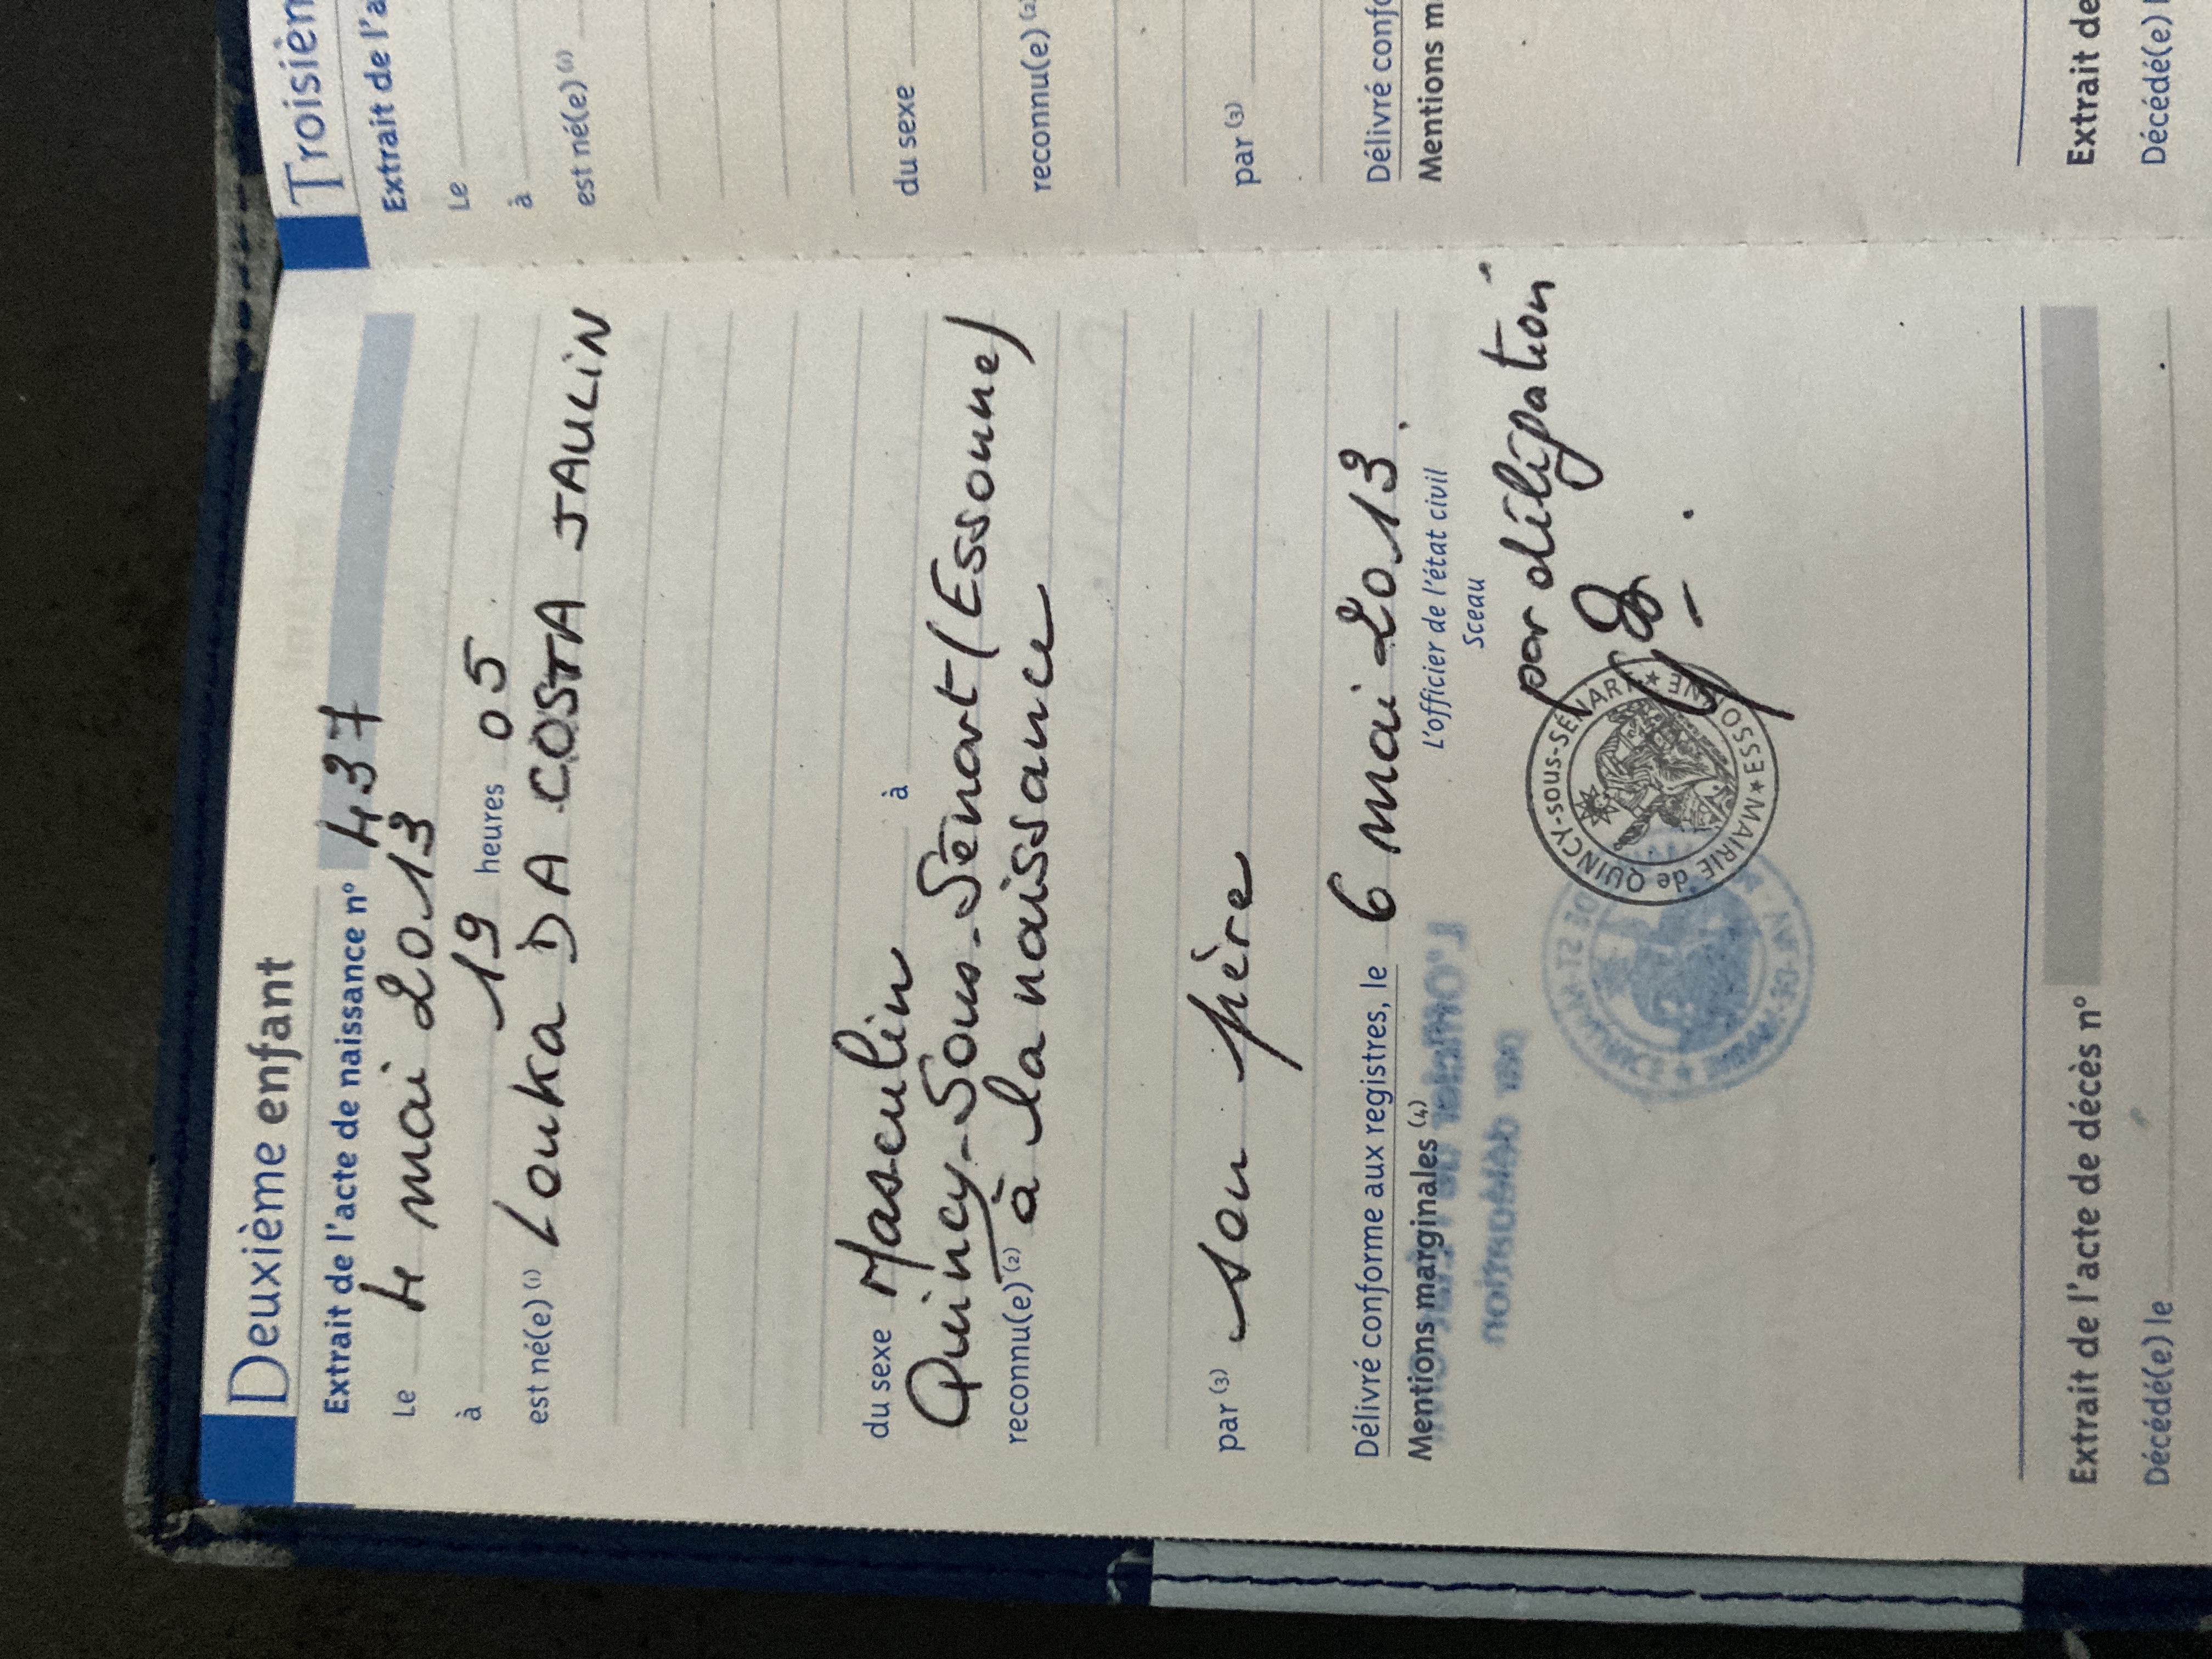 Deuxième enfant
Extrait de l'acte de naissance n° 437
Le 4 mai 2013
à 19 heures 05
est né(e) (1) Louka DA COSTA JAULIN
du sexe Masculin à
Quincy-Sous-Sénart (Essonne)
reconnu(e) (2) à la naissance
par (3) son père
Délivré conforme aux registres, le 6 mai 2013.
Mentions marginales (4)
L'officier de l'état civil
Sceau
par délégation
MAIRIE de QUINCY-sous-SÉNART ★ ESSONNE ★
Extrait de l'acte de décès n°
Décédé(e) le
Troisièm
Extrait de l'a
Le
à
est né(e) (1)
du sexe
reconnu(e) (2)
par (3)
Délivré confo
Mentions m
Extrait de
Décédé(e) l